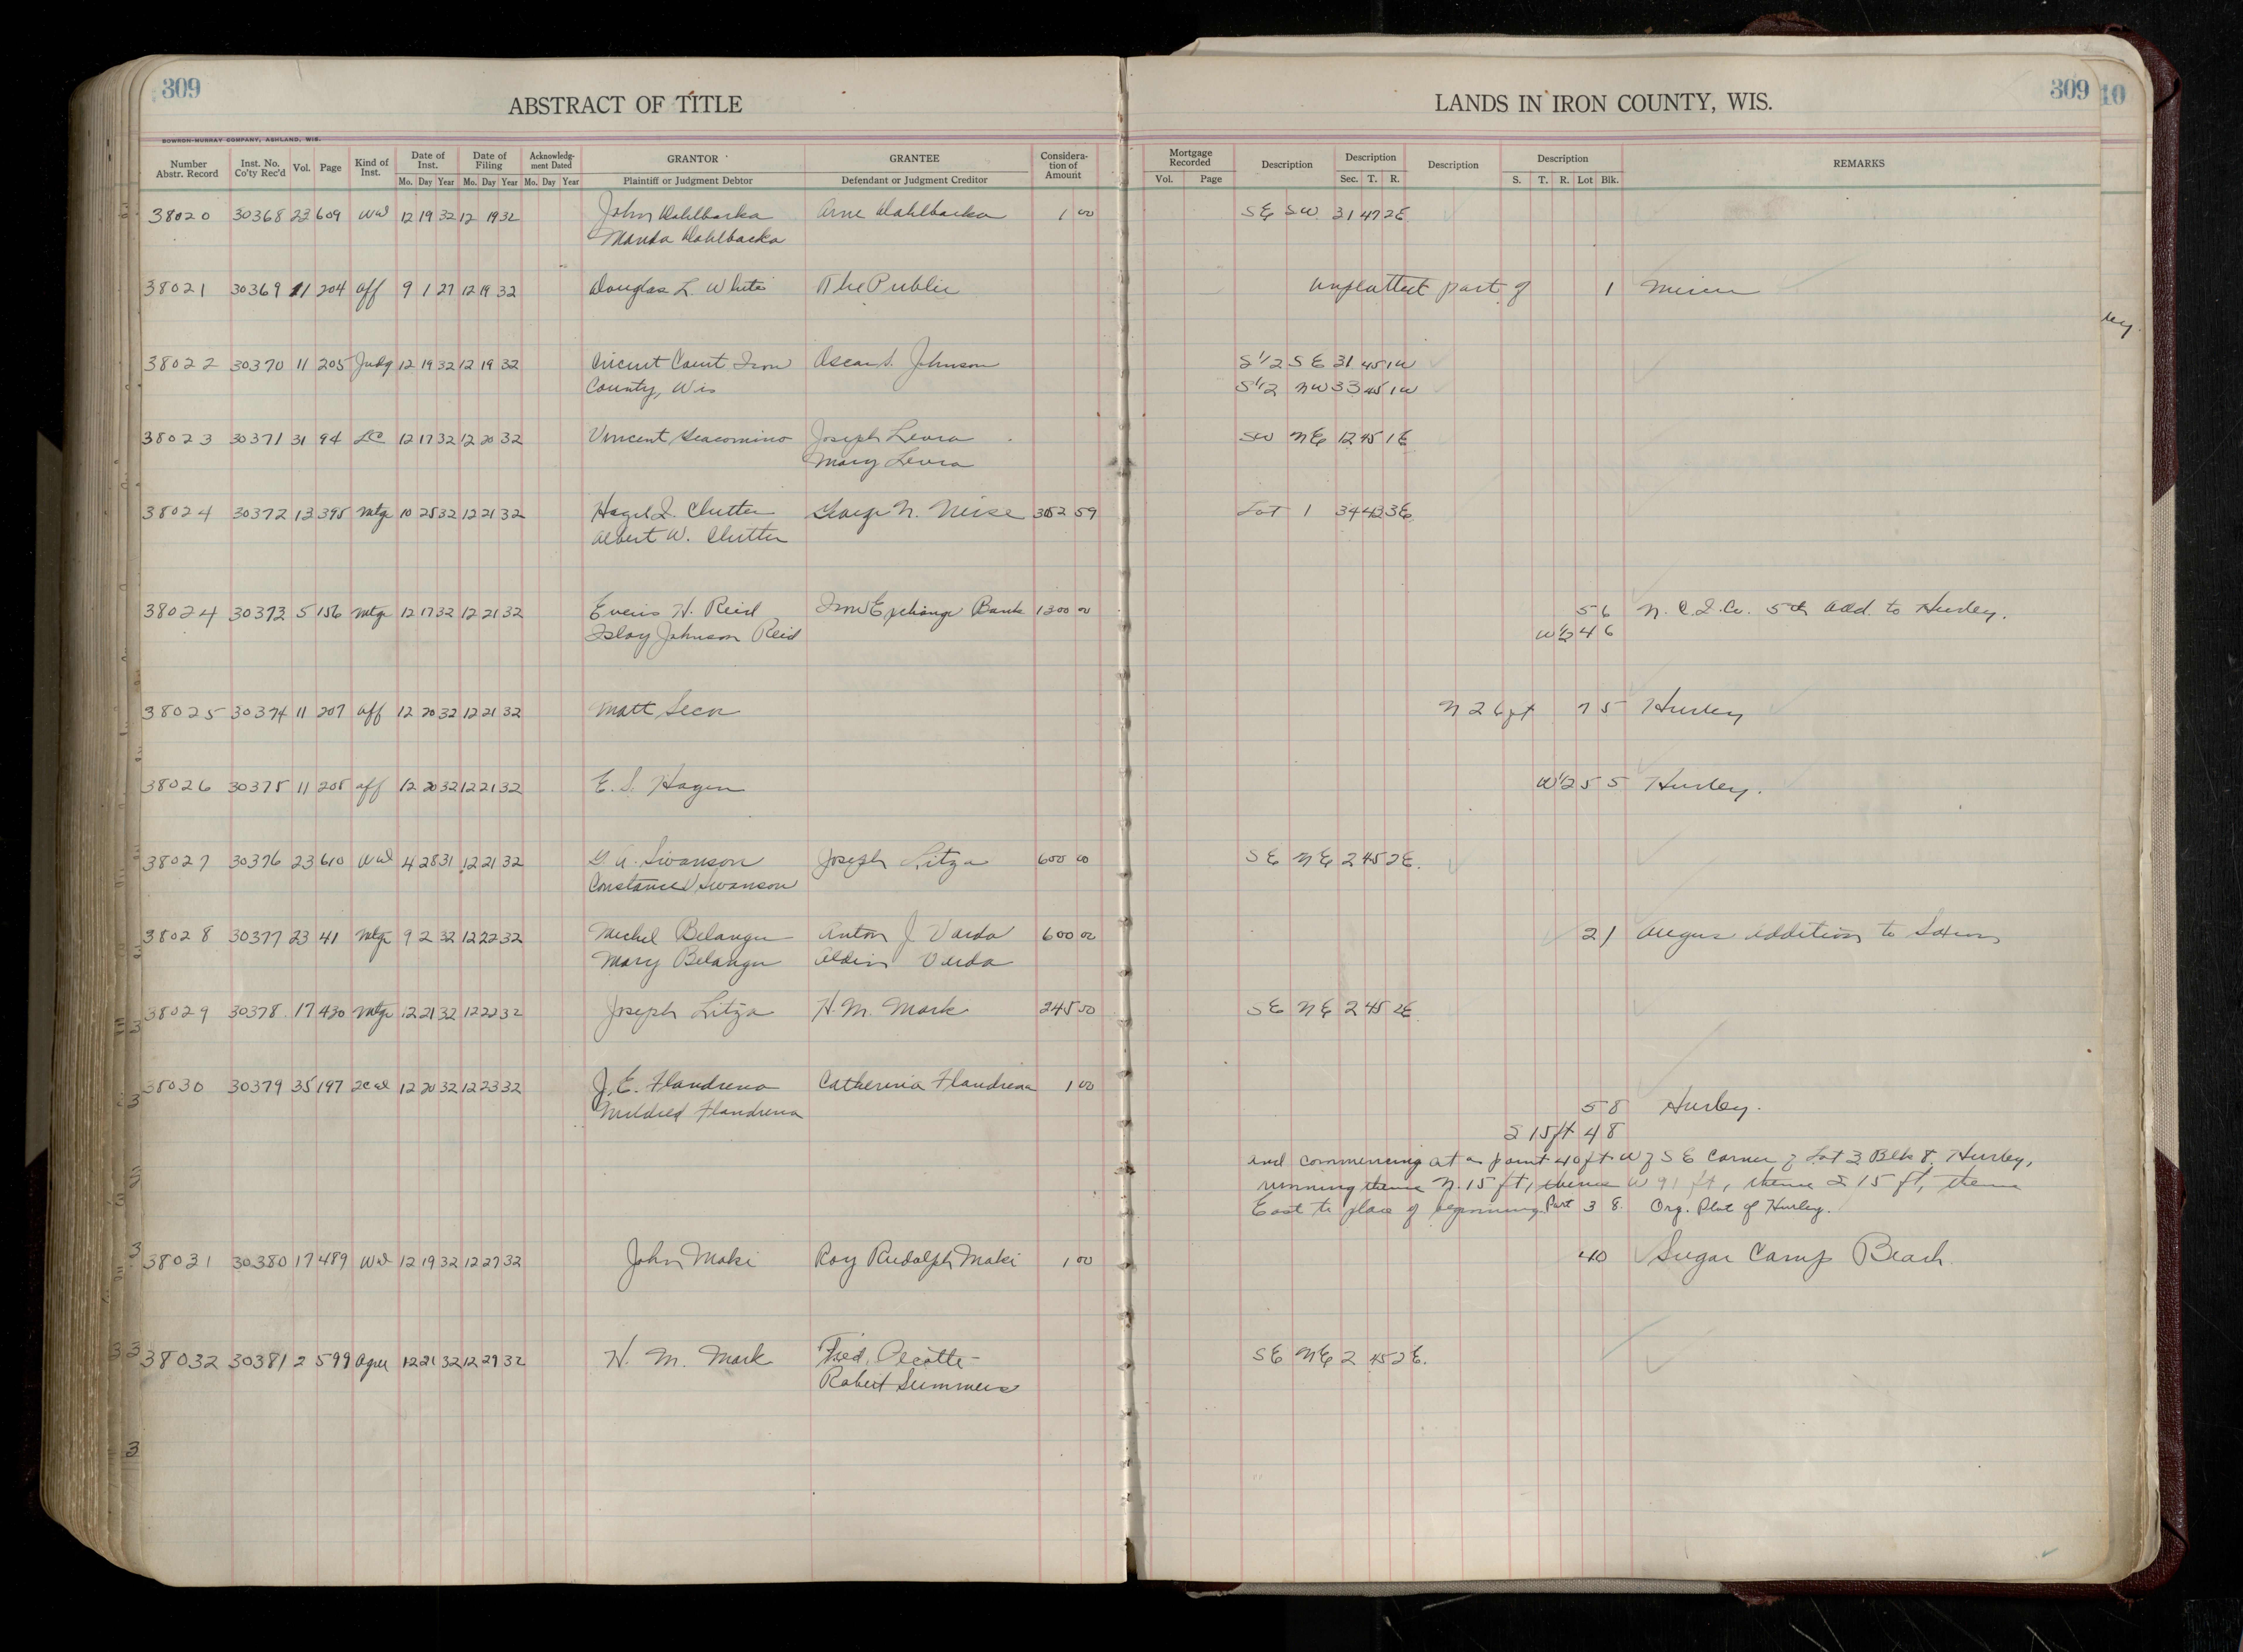 309
ABSTRACT OF TITLE
LANDS IN IRON COUNTY, WIS.
309
10
BOWRON-MURRAY COMPANY, ASHLAND, WIS.
Number Abstr. Record Inst. No. Co'ty Rec'd Vol. Page Kind of Inst. Date of Inst. Date of Filing Acknowledg-ment Dated GRANTOR GRANTEE Considera-tion of Amount Mortgage Recorded Description Description Description Description REMARKS
Mo. Day Year Mo. Day Year Mo. Day Year Plaintiff or Judgment Debtor Defendant or Judgment Creditor Vol. Page Sec. T. R. S. T. R. Lot Blk.
38020 30368 23 609 Wd 12 19 32 12 19 32 John Dahlbacka Arne Dahlbacka 1 00 SE SW 31 47 2E
Manda Dahlbacka
38021 30369 11 204 Aff 9 1 27 12 19 32 Douglas L. White The Public Unplatted part of 1 Mercer
38022 30370 11 205 Judg 12 19 32 12 19 32 Circuit Court Iron Oscar S. Johnson S 1/2 SE 31 45 1W
County, Wis S 1/2 NW 33 45 1W
38023 30371 31 94 LC 12 17 32 12 20 32 Vincent Giacomino Joseph Levra SW NE 12 45 1E
Mary Levra
38024 30372 13 395 Mtge 10 25 32 12 21 32 Hazel I. Clutter George N. 59 Lot 1 34 42 3E
Albert W. Clutter
38024 30373 5 156 Mtge 12 17 32 12 21 32 H. Reid Iron Exchange Bank 1300 00 5 6 N. C. I. Co. 5th Add. to Hurley.
Johnson Reid W 1/2 4 6
38025 30374 11 207 Aff 12 20 32 12 21 32 Matt N 26 ft 7 5 Hurley
38026 30375 11 208 Aff 12 20 32 12 21 32 E. S. Hagen W 1/2 5 5 Hurley.
38027 30376 23 610 Wd 4 28 31 12 21 32 G. A. Swanson Joseph Litza 600 00 SE NE 2 45 2E.
Constance Swanson
38028 30377 23 41 Mtge 9 2 32 12 22 32 Michel Belanger Anton J Varda 600 00 2 1 Angus Addition to Saxon
Mary Belanger Varda
38029 30378 17 430 Mtge 12 21 32 12 22 32 Joseph Litza H. M. Mark 245 00 SE NE 2 45 2E
38030 30379 35 197 2cd 12 20 32 12 23 32 J. E. Flandrena Catherina Flandrena 1 00
Mildred Flandrena 5 8 Hurley.
S 15 ft 4 8
and commencing at a point 40 ft W of SE Corner of Lot 3 Blk 8, Hurley,
running thence N. 15 ft, thence W 91 ft, thence S 15 ft, thence
East to place of beginning Part 3 8. Org. Plat of Hurley.
38031 30380 17 489 Wd 12 19 32 12 27 32 John Maki Roy Rudolph Maki 1 00 40 Sugar Camp Beach.
38032 30381 2 599 Agree 12 21 32 12 29 32 H. M. Mark Fred. SE NE 2 45 2E.
Robert Summers